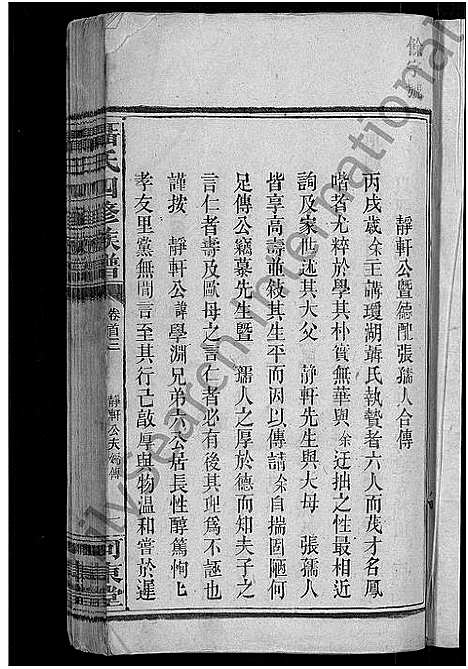 靜軒公暨德配張孺人合傳
丙戌歲余主講瓊湖聶氏執贄者六人而茂才名鳳
喈者尤粹於學其朴實無華與余迂拙之性最相近
詢及家世述其大父 靜軒先生與大母 張孺人
皆享高壽並敘其生平而囙以傳請余自揣固陋何
足傳公竊慕先生暨 孺人之厚於德而知夫子之
言仁者壽及歐母之言仁者必有後其理爲不誣也
謹按 靜軒公諱學淵兄弟六公居長性醇篤恂〻
孝友里黨無間言至其行己敲厚與物温和嘗於遲
聶氏四修族譜
卷首三
靜軒公夫婦傳
七
河東堂
FamilySearch International